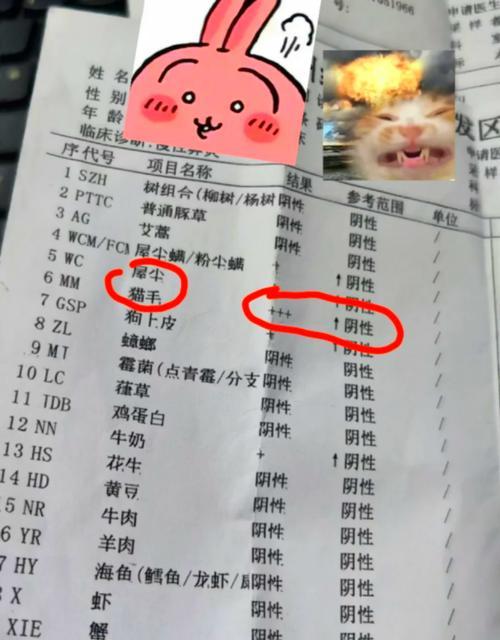 号: 1981966
申请医生
采样
姓名
性别
年龄
临床诊断:慢性鼻炎
发区
申请医
采样
序 代号 项目名称 结果 参考范围 单位
1 SZH 树组合(柳树/杨树 阴性 阴性 /
2 PTTC 普通豚草 阴性 阴性 /
3 AG 艾蒿 阴性 阴性 /
4 WCM/FCM 屋尘螨/粉尘螨 + ↑ 阴性 /
5 WC 屋尘 /
6 MM 猫毛 +++ ↑ 阴性 /
7 GSP 狗上皮 + ↑ 阴性 /
8 ZL 蟑螂 阴性 阴性 /
9 MT 霉菌(点青霉/分支 阴性 阴性 /
10 LC 葎草 阴性 阴性 /
11 TDB 鸡蛋白 阴性 阴性 /
12 NN 牛奶 + ↑ 阴性 /
13 HS 花生 阴性 阴性 /
14 HD 黄豆 阴性 阴性 /
5 NR 牛肉 阴性 阴性 /
6 YR 羊肉 阴性 阴性 /
7 HY 海鱼(鳕鱼/龙虾/扇 阴性 阴性 /
X 虾 阴性 阴性 /
XIE 蟹 阴性 阴性 /